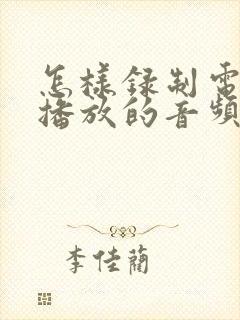 怎樣錄制電
播放的音頻
李佳蘭